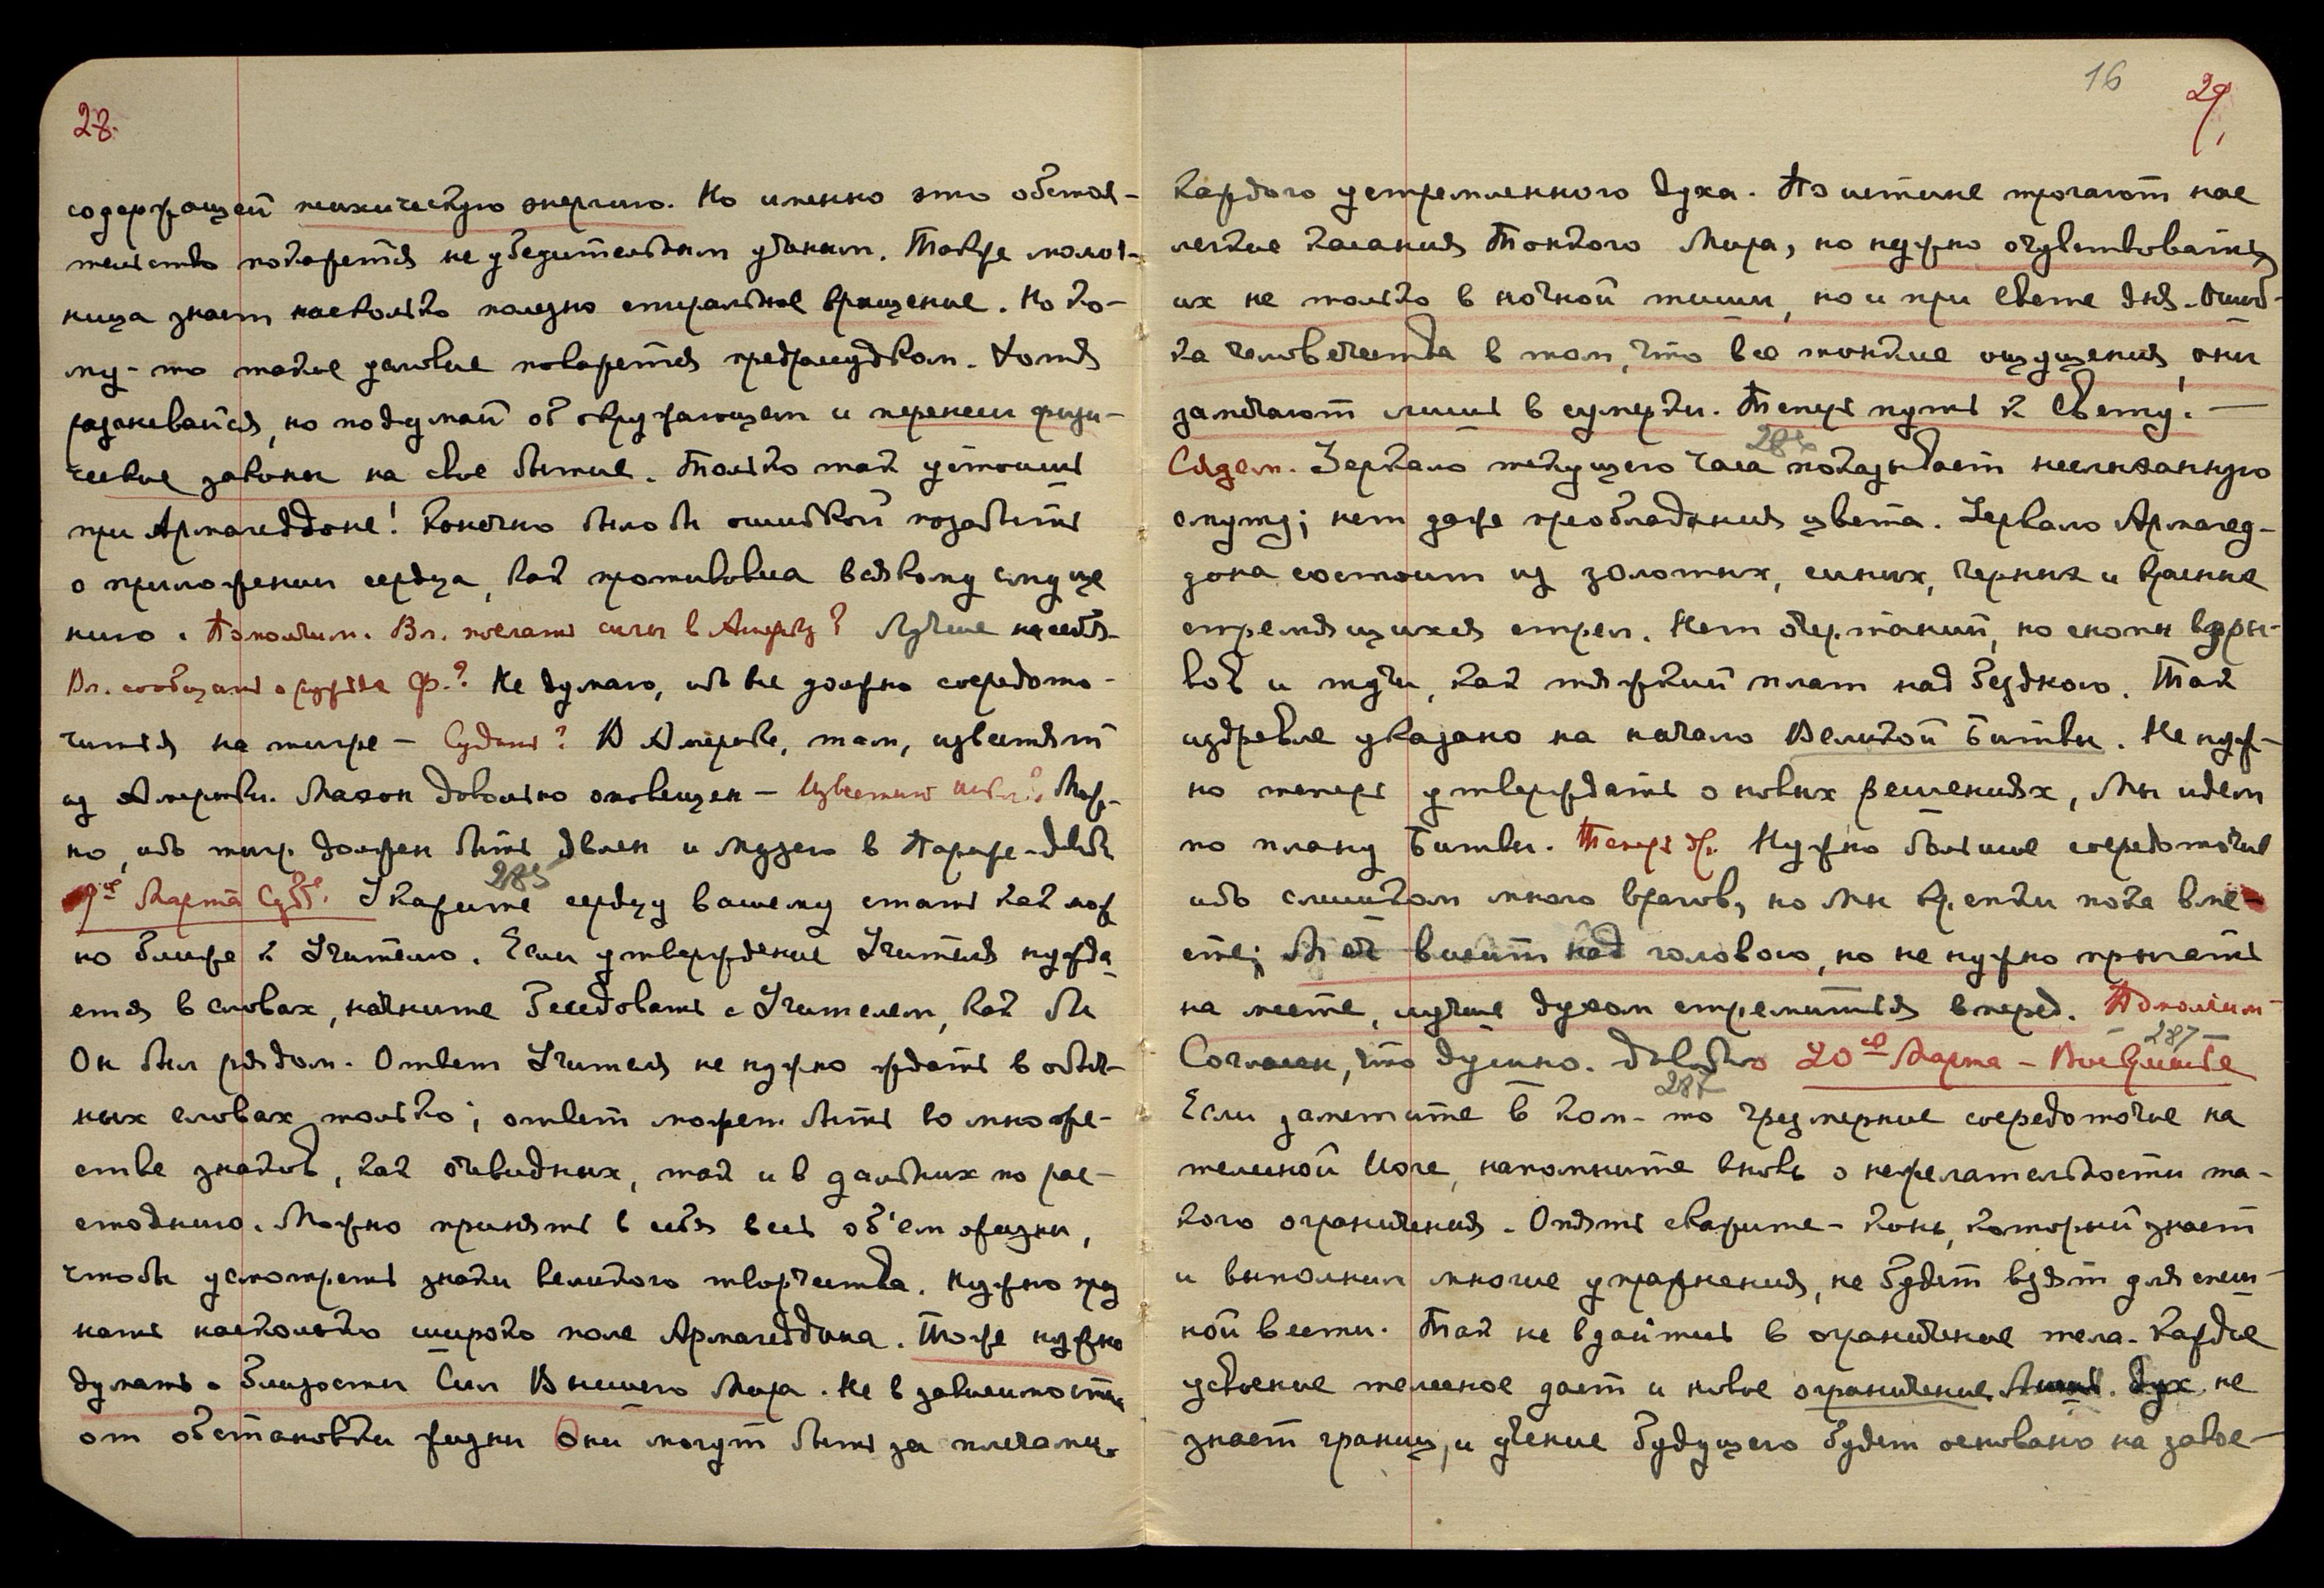 28.
содержащей психическую энергию. Но именно это обстоя-
тельство покажется не убедительным ученым. Также молоч-
ница знает насколько полезно спиральное вращение. Но ко-
му-то такое условие покажется предрассудком. Хотя
разоневайся, но подумай об окружающем и перенеси физи-
ческие законы на свое бытие. Только так устоишь
при Армагеддоне! Конечно было бы ошибкой позабыть
о приложении сердца, как противовеса всякому смуще
нию. Помолчим. Вл. послать силы в Америку? Лучше на себя.
Вл. сообщить о Ф.? Не думаю, ибо все должно сосредото-
читься на тигре – Судить? В Америке, там, известят
из Америки. Махон довольно оповещен – Известить Мож-
но, ибо тигр должен быть явлен и музею в Париже – довольно
19ое Марта Субб. 285 Укажите сердцу вашему стать как мож
но ближе к Учителю. Если утверждение Учителя нужда
ется в словах, начните беседовать с Учителем, как бы
Он был рядом. Ответ Учителя не нужно ждать в обыч-
ных словах только; ответ может быть во множе-
стве знаков, как очевидных, так и в дальних по рас-
стоянию. Можно принять в себя весь об'ем жизни,
чтобы усмотреть знаки великого творчества. Нужно приз
нать насколько широко поле Армагеддона. Тоже нужно
думать о близости Сил Высшего Мира. Не в зависимости
от обстановки жизни Они могут быть за плечами
16
29.
каждого устремленного духа. Поистине трогают нас
легкие касания Тонкого Мира, но нужно очувствоваться
их не только в ночной тиши, но и при свете дня. Ошиб-
ка человечества в том, что все тонкие ощущения, они
замечают лишь в сумерки. Теперь путь к Свету! –
Сядем. 286 Зеркало текущего часа показывает неслыханную
смуту; нет даже преобладания цвета. Зеркало Армагед-
дона состоит из золотых, синих, черных и красных
стремящихся стрел. Нет очертаний, но снопы взры-
вов и тучи, как тяжкий плат над бездною. Так
издревле указано на начало Великой Битвы. Не нуж-
но теперь утверждать о новых решениях, Мы идем
по плану Битвы. Теперь др. Нужно большое сосредоточие
ибо слишком много врагов, но Мы крепки пока вме-
сте; Меч висит над головою, но не нужно прыгать
на месте, лучше духом стремиться вперед. Помолчим –
Согласен, что душно. Довольно 20ое Марта – Воскресенье 287
287 Если заметите в ком-то чрезмерное сосредоточие на
телесной Йоге, напомните вновь о нежелательности та-
кого ограничения. Опять скажите – конь, который знает
и выполнил многие упражнения, не будет взят для спеш-
ной вести. Так не вдайтесь в ограничение тела. Каждое
усвоение телесное дает и новое ограничение. Дух не
знает границ, и учение будущего будет основано на завое-